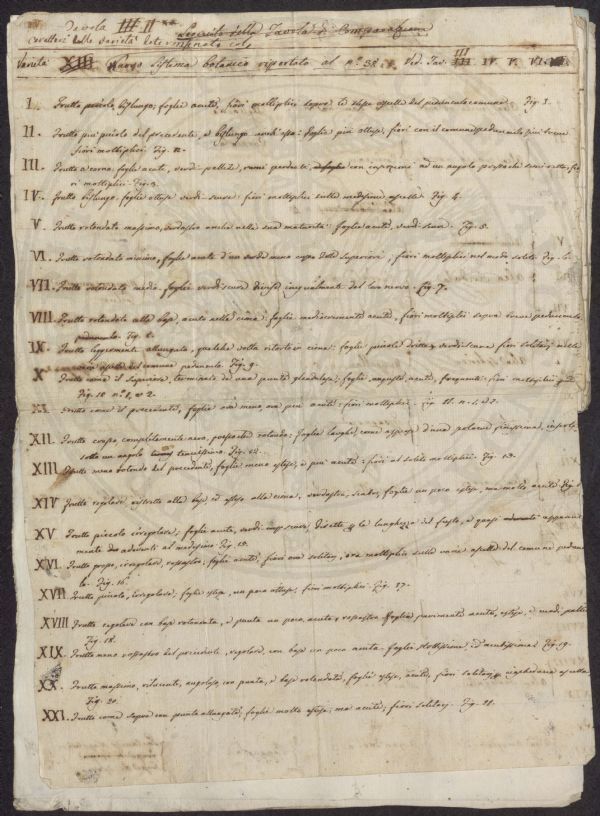 Tavola III II
Seguito della Tavola di Comparazione
caratteri delle varietà determinate col
Varietà XIII Nuovo sistema botanico riportato al n.° 38. Ved. Tav. III. IV. V. VI.
I. Frutto piccolo, bislungo; foglie acute, fiori moltiplici sopra le stesse ascelle del peduncolo comune. Fig. 1.
II. Frutto più piccolo del precedente, e bislungo anch'esso: foglie più ottuse, fiori con il comune peduncolo più breve
fiori moltiplici. Fig. 2.
III. Frutto a corna, foglie acute, verdi-pallide, rami penduli, con inserzione ad un angolo presso che semi-retto, fio
ri moltiplici. Fig. 3.
IV. Frutto bislungo, foglie ottuse verdi-scure: fiori moltiplici sulle medesime ascelle. Fig. 4.
V. Frutto rotondato massimo, verdastro anche nella sua maturità: foglie acute, verdi-scure. Fig. 5.
VI. Frutto rotondato minimo, foglie acute d'un verde meno cupo delle superiori, fiori moltiplici nel modo solito. Fig. 6.
VII. Frutto rotondato medio, foglie verdi-scure divise inegualmente dal loro nervo. Fig. 7.
VIII. Frutto rotondato alla base, acuto nella cima: foglie mediocremente acute, fiori moltiplici sopra breve peduncolo
peduncolo. Fig. 8.
IX. Frutto leggermente allungato, qualche volta ritorto in cima: foglie piccole dritte e verdi-scure fiori solitarj nelle
varie ascelle del comune peduncolo. Fig. 9.
X. Frutto come il superiore, terminato da una punta glandolosa; foglie anguste, acute, frequenti: fiori moltiplici
Fig. 10 n.° 1, e 2.
XI. Frutto come il precedente, foglie ora meno, ora più acute: fiori moltiplici. Fig. 11. n. 1, e 2.
XII. Frutto crespo completamente nero, pressoché rotondo: foglie larghe, come asperse d'una polvere finissima, inserte
sotto un angolo tenuissimo. Fig. 12.
XIII. Frutto meno rotondo del precedente, foglie meno estese, e più acute: fiori al solito moltiplici. Fig. 13.
XIV. Frutto regolare, ristretto alla base, ed esteso alla cima, verdastro, scabro, foglie un poco estese, ma molto acute. Fig.
XV. Frutto piccolo irregolare; foglie acute, verdi scure, dirette la lunghezza del fusto, e quasi apparente
mente aderenti al medesimo. Fig. 15.
XVI. Frutto grosso, irregolare, rossastro; foglie acute, fiori ora solitarj, ora moltiplici sulle varie ascelle del comune pedunco
lo. Fig. 16.
XVII. Frutto piccolo, irregolare; foglie estese, un poco ottuse, fiori moltiplici. Fig. 17.
XVIII. Frutto regolare con base rotondata, e punta un poco acuta, rossastro, foglie parimenti acute, estese, e verdi pallide
Fig. 18.
XIX. Frutto meno rossastro del precedente, regolare, con base un poco acuta: foglie strettissime, ed acutissime. Fig. 19.
XX. Frutto massimo, rilucente, angoloso, con punta, e base rotondata, foglie estese, acute, fiori solitarj in ciascheduna ascella
Fig. 20.
XXI. Frutto come sopra con punta allungata; foglie molto estese, ma acute; fiori solitarj. Fig. 21.